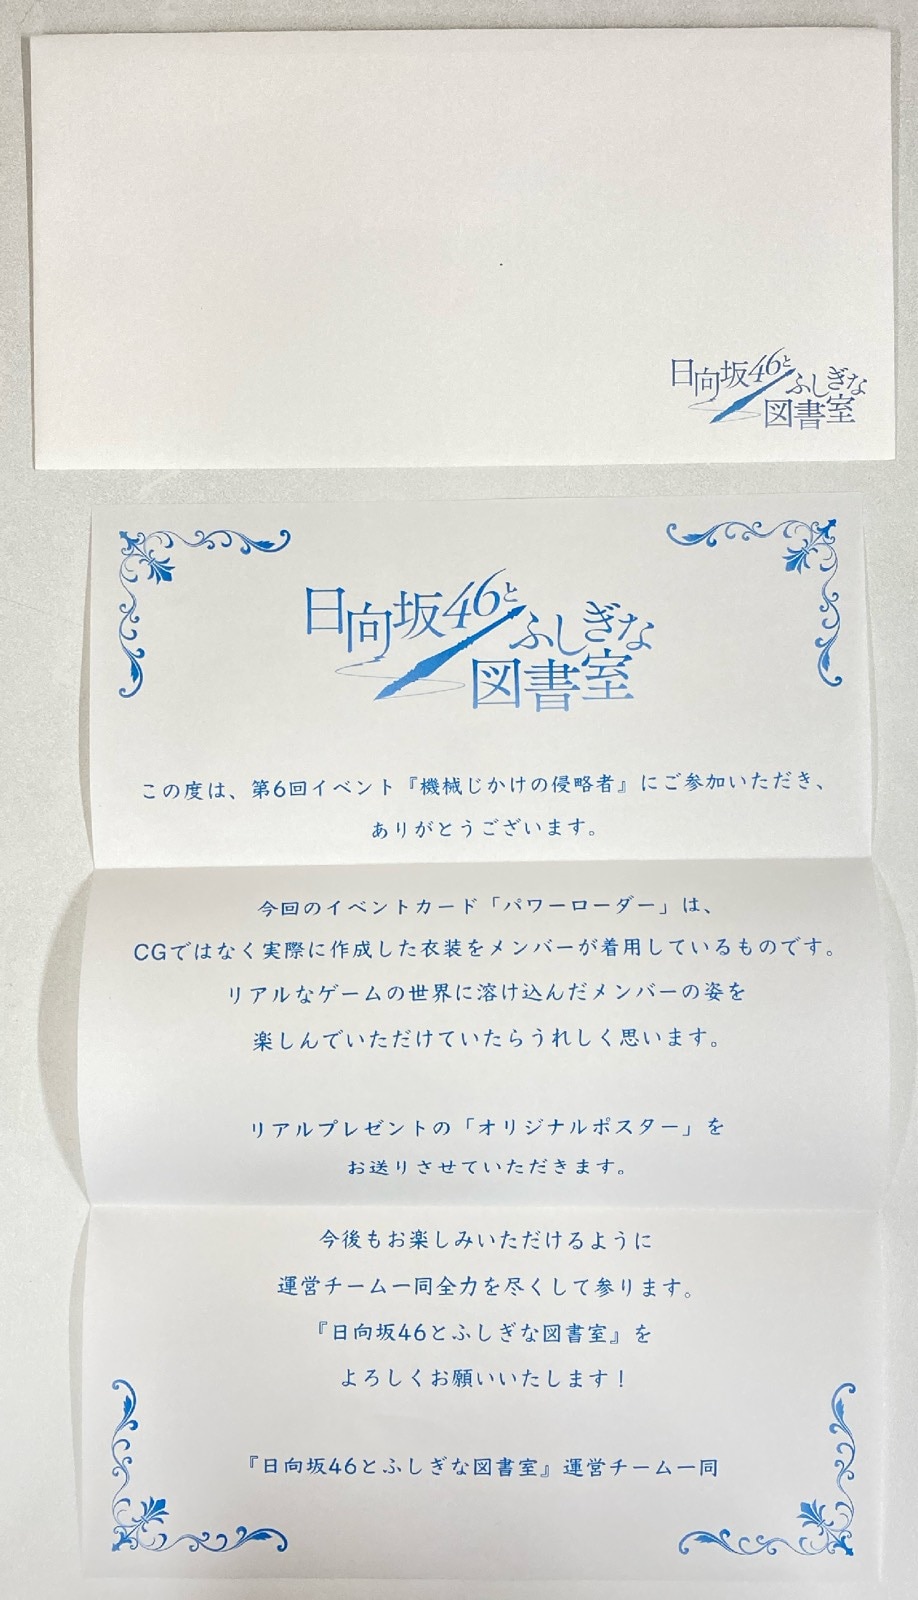 日向坂46と
ふしぎな
図書室
日向坂46と
ふしぎな
図書室
この度は、第6回イベント『機械じかけの侵略者』にご参加いただき、
ありがとうございます。
今回のイベントカード「パワーローダー」は、
CGではなく実際に作成した衣装をメンバーが着用しているものです。
リアルなゲームの世界に溶け込んだメンバーの姿を
楽しんでいただけていたらうれしく思います。
リアルプレゼントの「オリジナルポスター」を
お送りさせていただきます。
今後もお楽しみいただけるように
運営チーム一同全力を尽くして参ります。
『日向坂46とふしぎな図書室』を
よろしくお願いいたします！
『日向坂46とふしぎな図書室』運営チーム一同